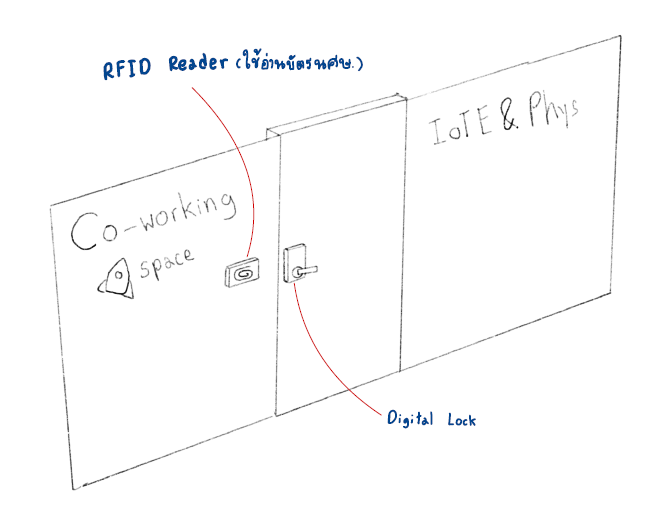 RFID Reader (ใช้อ่านบัตรนศษ.)
IoTE & Phys
Co-working
space
Digital Lock